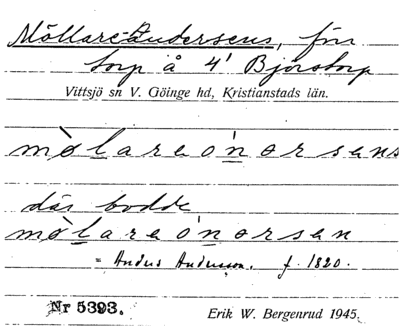 Möllare-Andersens, för
torp å 4' Björstorp
Vittsjö sn V. Göinge hd, Kristianstads län.
mòlareónorsens
där bodde
mòlareónorsen
= Anders Andersson. f. 1820.
Nr 5393.
Erik W. Bergenrud 1945.